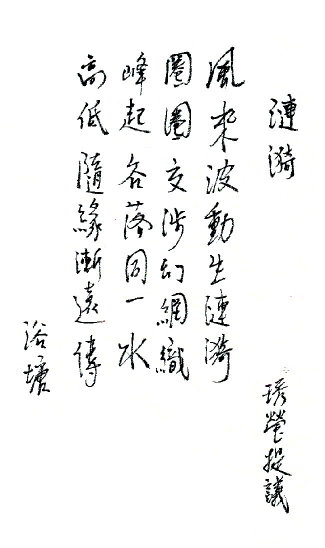 漣漪
風來波動生漣漪
圈圈交涉幻網織
峰起谷落同一水
高低隨緣漸遠傳
浴塘
琇瑩提議